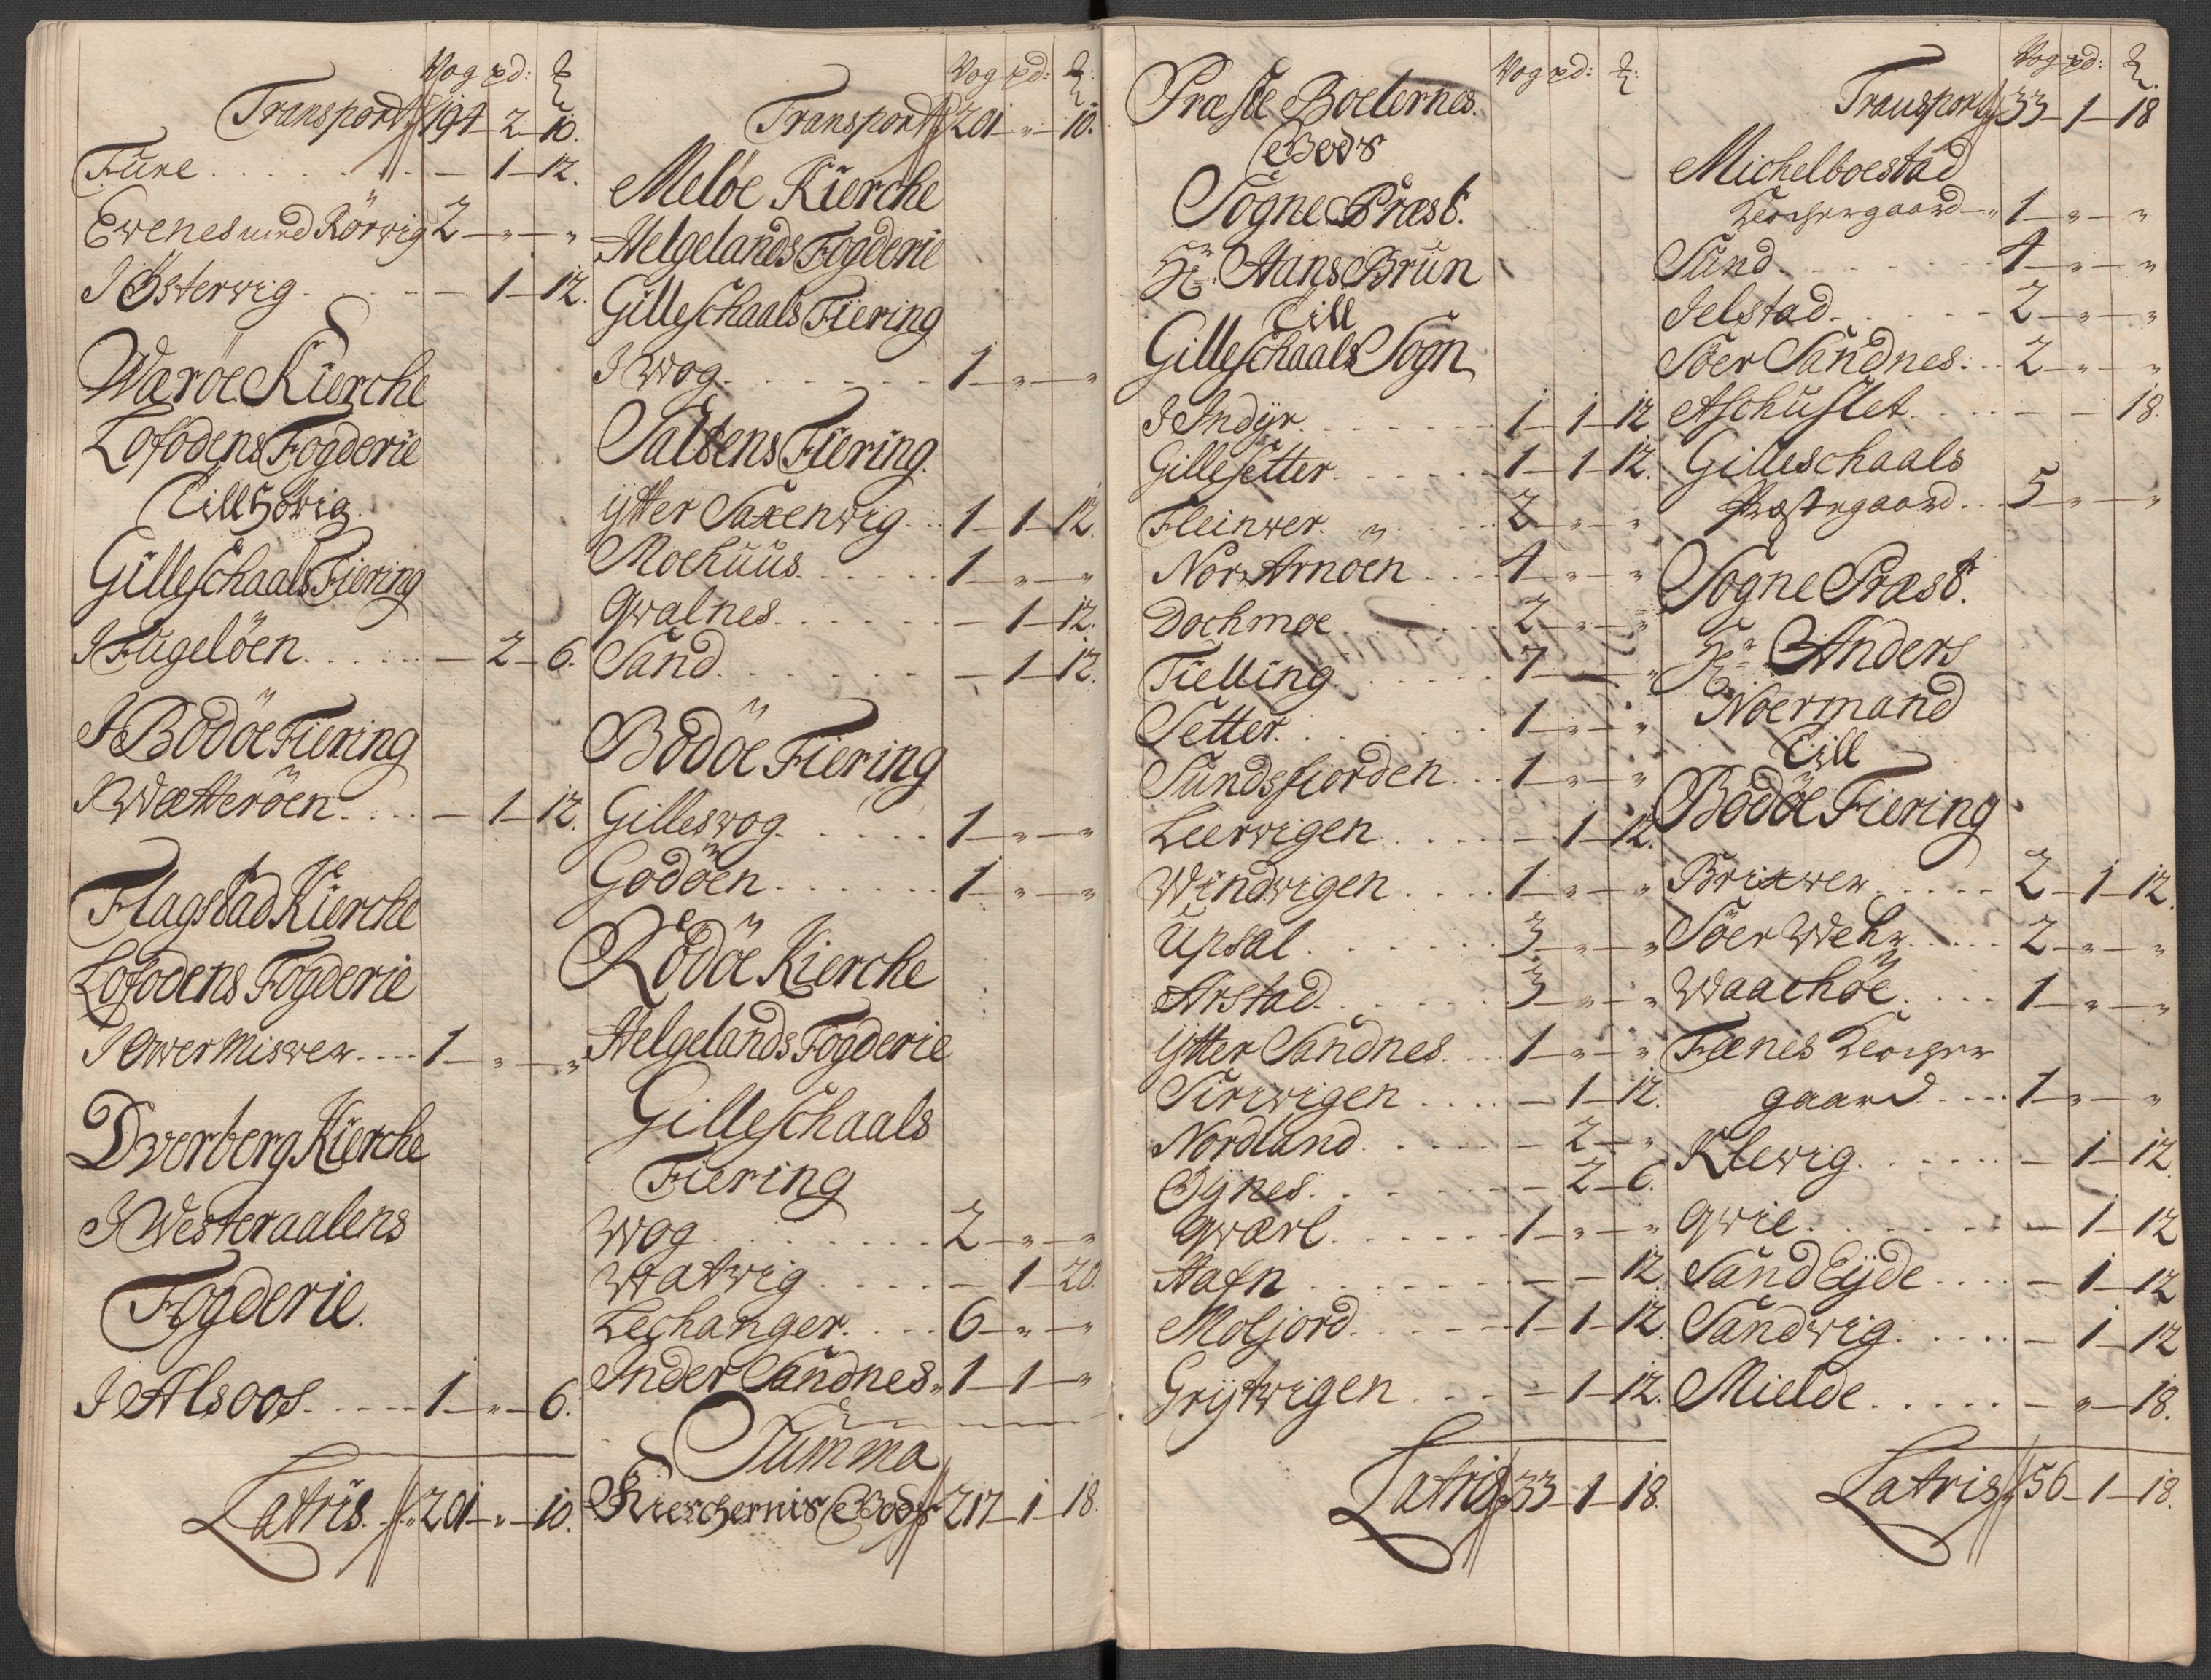 Vog pd: ℔
Transport 194 - 2 - 10.
Fure . . . . . - 1 - 12.
Evenes med Rörvig 2 - " - "
I Östervig . . . - 1 - 12.
Waröe Kierche
Lofodens Fogderie
Till Hörig
Gilleschaals Fiering
I Fugelöen . . . . - 2 - 6.
I Bodöe Fiering
I Wætteröen . . . - 1 - 12.
Flagstad Kierche
Lofodens Fogderie
I Ower Miswer . . . . 1 - " - "
Dverberg Kierche
I Westeraalens
Fogderie.
I Alsoos . . . . . 1 - " - 6.
Latris 201 - " - 10.
Vog pd: ℔:
Transport 201 - " - 10.
Meløe Kierche
Helgelands Fogderie
Gilleschaals Fiering
I Wog . . . . . . 1 - " - "
Saltens Fiering.
ytter Saxenvig . . 1 - 1 - 12.
Moehuus . . . . . 1 - " - "
Qvalnes . . . . . - 1 - 12.
Sand . . . . . . - 1 - 12.
Bodöe Fiering
Gilleswog . . . . 1 - " - "
Godöen . . . . . 1 - " - "
Rödöe Kierche
Helgelands Fogderie
Gilleschaals
Fiering
Wog . . . . . . 2 - " - "
Watvig . . . . - 1 - 20.
Lechanger . . . . 6 - " - "
Inder Sandnes " 1 - 1 - "
Summa
Kierchernis Bods 217 - 1 - 18.
Vog pd: ℔:
Præste Boelernes.
Bods
Sogne Præst.
Hr. Hans Brun
Till
Gilleschaals Sogn
I Indyr . . . . . 1 - 1 - 12
Gillesetter . . . . 1 - 1 - 12.
Fleinver . . . . . 2 - " - "
Nor Arnöen . . . . 4 - " - "
Dochmoe . . . . 2 - " - "
Tielling . . . . . 7 - " - "
Setter . . . . . 1 - " - "
Sundsfiorden . . . 1 - " - "
Leervigen . . . . - 1 - 12.
Windvigen . . . . 1 - " - "
Upsal . . . . . . 3 - " - "
Arstad . . . . . 3 - " - "
ytter Sandnes . . . 1 - " - "
Sirivigen . . . . - 1 - 12.
Nordland . . . . - 2 - "
Öynes . . . . . - 2 - 6.
Qwærl . . . . . 1 - " - "
Hafn . . . . . . - - 12.
Moljord . . . . . 1 - 1 - 12.
Grytvigen . . . . - 1 - 12.
Latris 33 - 1 - 18.
Vog pd: ℔
Transport 33 - 1 - 18
Michelboestad
Kerchergaard - " 1 - " - "
Sund . . . . . . 4 - " - "
Jelstad . . . . . 2 - " - "
Söer Sandnes . . 2 - " - "
Aschuslet . . . . - - 18.
Gilleschaals
Præstegaard . . 5 - " - "
Sogne Præst.
Hr. Anders
Noermand
Till
Bodöe Fiering
Brixwer . . . . . 2 - 1 - 12.
Söer Wehr . . . . 2 - " - "
Waachöe . . . . 1 - " - "
Fænes Kercher
gaard . . . . 1 - " - "
Klevig . . . . . - 1 - 12.
Qvie . . . . . . - 1 - 12
Sand Eyde . . . . - 1 - 12
Sandvig . . . . . - 1 - 12
Mielde . . . . . - " - 18.
Latris 56 - 1 - 18.